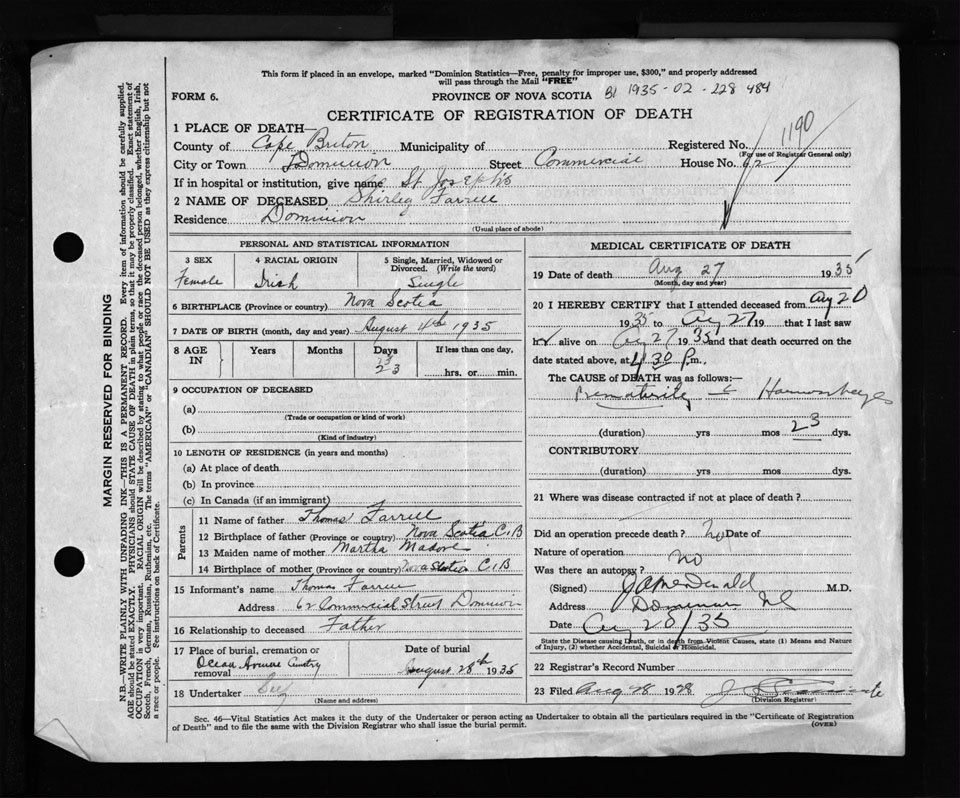 This form if placed in an envelope, marked "Dominion Statistics—Free, penalty for improper use, $300," and properly addressed
will pass through the Mail "FREE"
FORM 6.
PROVINCE OF NOVA SCOTIA B1 1935-02-228 484
CERTIFICATE OF REGISTRATION OF DEATH
1190
1 PLACE OF DEATH—
County of Cape Breton Municipality of Registered No.
(For use of Registrar General only)
City or Town Dominion Street Commercial House No. 62
If in hospital or institution, give name St Joseph's
2 NAME OF DECEASED Shirley Farrell
Residence Dominion
(Usual place of abode)
PERSONAL AND STATISTICAL INFORMATION
3 SEX
Female
4 RACIAL ORIGIN
Irish
5 Single, Married, Widowed or
Divorced. (Write the word)
Single
6 BIRTHPLACE (Province or country) Nova Scotia
7 DATE OF BIRTH (month, day and year) August 4th 1935
8 AGE IN Years Months Days If less than one day,
23
23 hrs. or min.
9 OCCUPATION OF DECEASED
(a)
(Trade or occupation or kind of work)
(b)
(Kind of industry)
10 LENGTH OF RESIDENCE (in years and months)
(a) At place of death
(b) In province
(c) In Canada (if an immigrant)
Parents
11 Name of father Thomas Farrell
12 Birthplace of father (Province or country) Nova Scotia C.B
13 Maiden name of mother Martha Madore
14 Birthplace of mother (Province or country) Nova Scotia C.B
15 Informant's name Thomas Farrell
Address 62 Commercial Street Dominion
16 Relationship to deceased Father
17 Place of burial, cremation or
removal
Date of burial
August 28th 1935
18 Undertaker
(Name and address)
MEDICAL CERTIFICATE OF DEATH
19 Date of death Aug 27 1935
(Month, day and year)
20 I HEREBY CERTIFY that I attended deceased from Aug 20
1935 to Aug 27 19 that I last saw
alive on Aug 27 1935 and that death occurred on the
date stated above, at 4 30 P.m.
The CAUSE of DEATH was as follows:—
Prematurity
(duration) yrs mos 23 dys.
CONTRIBUTORY
(duration) yrs mos dys.
21 Where was disease contracted if not at place of death?
Did an operation precede death? No Date of
Nature of operation
Was there an autopsy? No
(Signed) M.D.
Address Dominion
Date Aug 20/35
State the Disease causing Death, or in death from Violent Causes, state (1) Means and Nature
of Injury, (2) whether Accidental, Suicidal or Homicidal.
22 Registrar's Record Number
23 Filed Aug 28 1928
(Division Registrar)
Sec. 46—Vital Statistics Act makes it the duty of the Undertaker or person acting as Undertaker to obtain all the particulars required in the "Certificate of Registration
of Death" and to file the same with the Division Registrar who shall issue the burial permit.
(OVER)
MARGIN RESERVED FOR BINDING
N.B.—WRITE PLAINLY WITH UNFADING INK—THIS IS A PERMANENT RECORD. Every item of information should be carefully supplied.
AGE should be stated EXACTLY. PHYSICIANS should STATE CAUSE OF DEATH in plain terms, so that it may be properly classified. Exact statement of
OCCUPATION is very important. RACIAL ORIGIN will be described by stating to what people or race the deceased person belonged, whether English, Irish,
Scotch, French, German, Russian, Ruthenian, etc. The terms "AMERICAN" or "CANADIAN" SHOULD NOT BE USED as they express citizenship but not
a race or people. See instructions on back of Certificate.